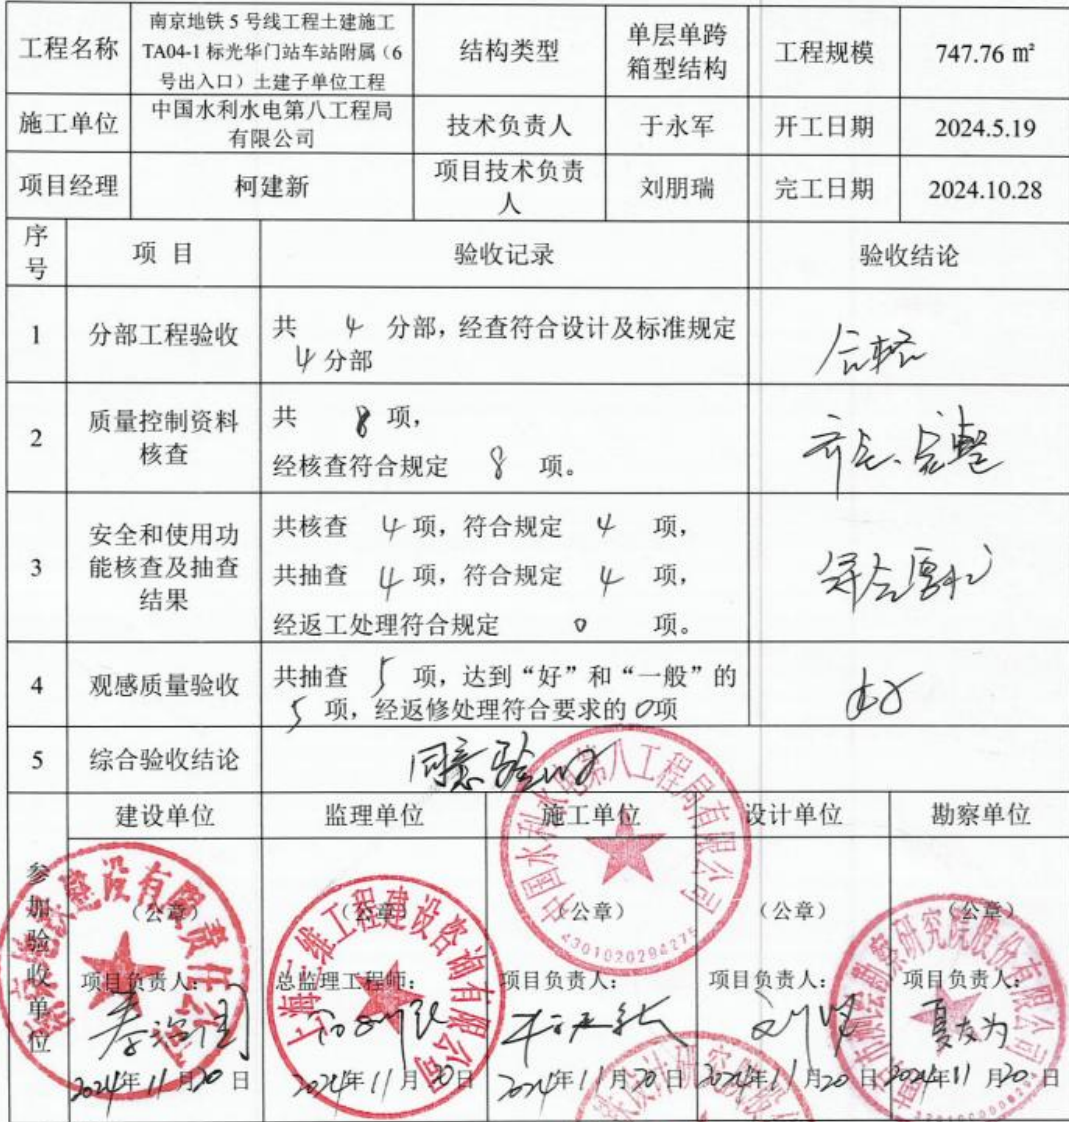 工程名称
南京地铁 5 号线工程土建施工
TA04-1 标光华门站车站附属（6
号出入口）土建子单位工程
结构类型
单层单跨
箱型结构
工程规模
747.76 ㎡
施工单位
中国水利水电第八工程局
有限公司
技术负责人
于永军
开工日期
2024.5.19
项目经理
柯建新
项目技术负责
人
刘朋瑞
完工日期
2024.10.28
序
号
项 目
验收记录
验收结论
1
分部工程验收
共 4 分部，经查符合设计及标准规定
4 分部
合格
2
质量控制资料
核查
共 8 项，
经核查符合规定 8 项。
齐全、完整
3
安全和使用功
能核查及抽查
结果
共核查 4 项，符合规定 4 项，
共抽查 4 项，符合规定 4 项，
经返工处理符合规定 0 项。
符合要求
4
观感质量验收
共抽查 5 项，达到“好”和“一般”的
5 项，经返修处理符合要求的 0项
好
5
综合验收结论
同意验收
参加验收单位
建设单位
监理单位
施工单位
设计单位
勘察单位
（公章）
（公章）
（公章）
（公章）
（公章）
项目负责人：
总监理工程师：
项目负责人：
项目负责人：
项目负责人：
夏友为
2024年 11 月 20 日
2024年 11 月 20 日
2024年 11 月 20 日
2024年 11 月 20 日
2024年 11 月 20 日
建设有限责任公司
上海三维工程建设咨询有限公司
中国水利水电第八工程局有限公司
4301020294275
勘察研究院股份有限公司